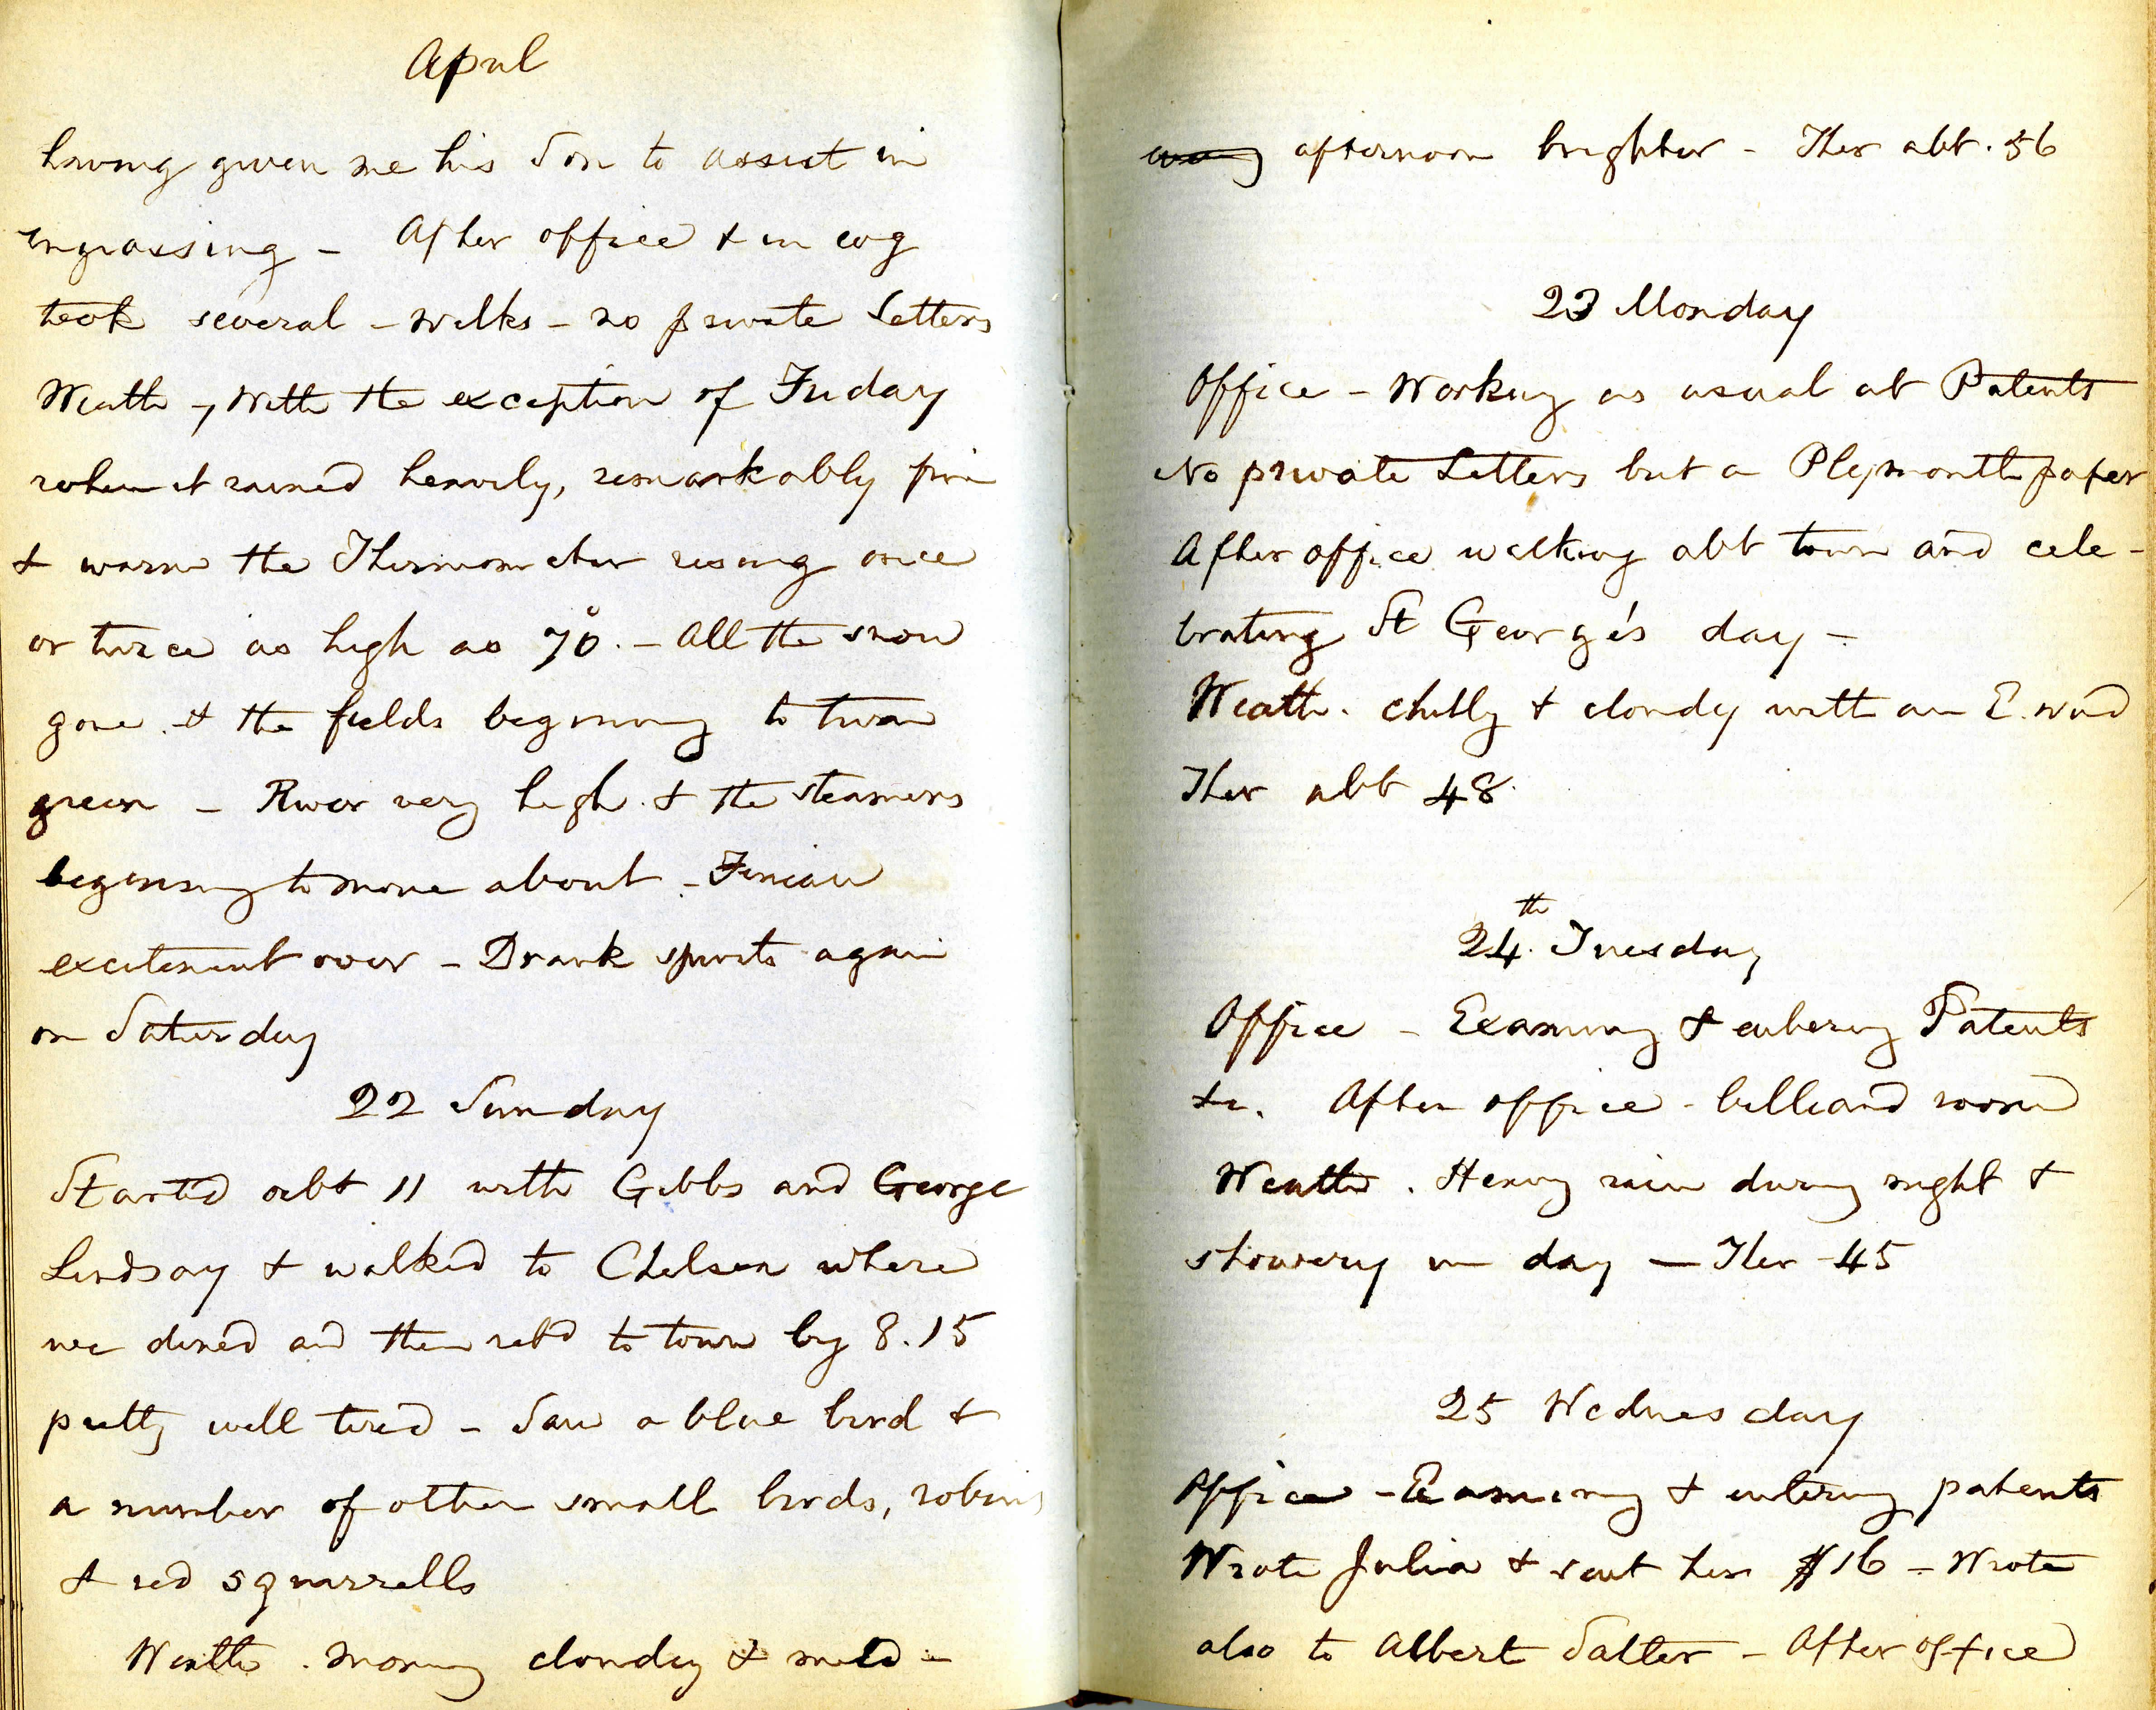 April
having given me his Son to assist in
engrossing - After office & in evg
took several - walks - no private Letters
Weath -, With the exception of Friday
when it rained heavily, remarkably fine
& warm the Thermometer rising once
or twice as high as 70°. - All the snow
gone. & the fields beginning to turn
green - River very high. & the steamers
beginning to move about - Fenian
excitement over - Drank spirits again
on Saturday
22 Sunday
Started abt 11 with Gibbs and George
Lindsay & walked to Chelsea where
we dined and then retd to town by 8.15
pretty well tired - Saw a blue bird &
a number of other small birds, robins
& red squirrells
Weath. morning cloudy & mild -
afternoon brighter - Ther abt. 56
23 Monday
Office - Working as usual at Patents
No private Letters but a Plymouth paper
After office walking abt town and cele-
brating St George's day -
Weath. chilly & cloudy with an E. wind
Ther abt 48.
24th. Tuesday
Office - Examing & entering Patents
&c. After office - billiard room
Weath. Heavy rain during night &
showery in day - Ther - 45
25 Wednesday
Office - Examining & entering patents
Wrote Julia & sent her $16 - Wrote
also to Albert Salter - After office